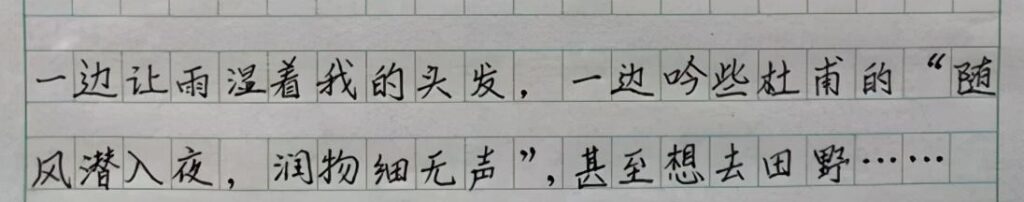 一边让雨湿着我的头发，一边吟些杜甫的“随
风潜入夜，润物细无声”，甚至想去田野……